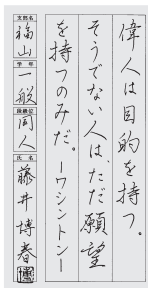 偉人は目的を持つ。
そうでない人は、ただ願望
を持つのみだ。ーワシントンー
支部名
福山
学年
一般
段級位
同人
氏名
藤井博春